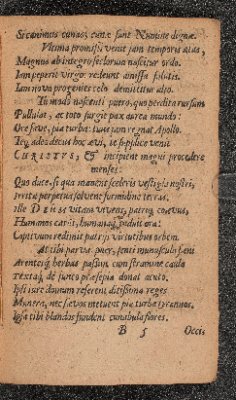 Si canimus cunas, cunæ sunt Numine dignæ.
Vltima promissi venit jam temporis ætas,
Magnus ab integro seclorum nascitur ordo.
Iam peperit virgo: redeunt amissa salutis.
Iam nova progenies cælo demittitur alto.
Tu modo nascenti puero, quo perdita rursum
Pullulat, ac toto surgit pax aurea mundo:
Ore fave, pia turba: tuus jam regnat Apollo.
Teque adeo decus hoc ævi, te supplice venit
CHRISTVS, & incipient magni procedere
menses:
Quo duce, si qua manent sceleris vestigia nostri,
Irrita perpetua solvent formidine terras.
Ille DEVS vitam vivens, patrique coævus,
Humanos cœtus, humanaque induit ora:
Captivumque redimit patriis virtutibus orbem.
At tibi parve puer, fœni munuscula fient
Arentesque herbæ passim cum stramine cauda
Textaque de junco præsepia donat acuto.
Ipsi iure domum referent ditissima reges
Munera, nec sævos metuent pia turba tyrannos.
Ipsa tibi blandos fundent cunabula flores.
B 5 Occi-